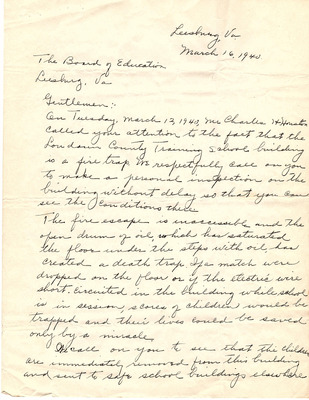 Leesburg, Va
March 16, 1940.
The Board of Education
Leesburg, Va
Gentlemen:-
On Tuesday, March 12, 1940, Mr Charles H. Houston
called your attention to the fact that the
Loudoun County Training School building
is a fire trap. We respectfully call on you
to make a personal inspection on the
building without delay so that you can
see the conditions there.
The fire escape is inaccessible and the
open drum of oil, which has saturated
the floor under the steps with oil has
created a death trap. If a match were
dropped on the floor or if the electric wire
short circuited in the building while school
is in session, scores of children would be
trapped and their lives could be saved
only by a miracle.
We call on you to see that the children
are immediately removed from this building
and sent to safe school buildings elsewhere